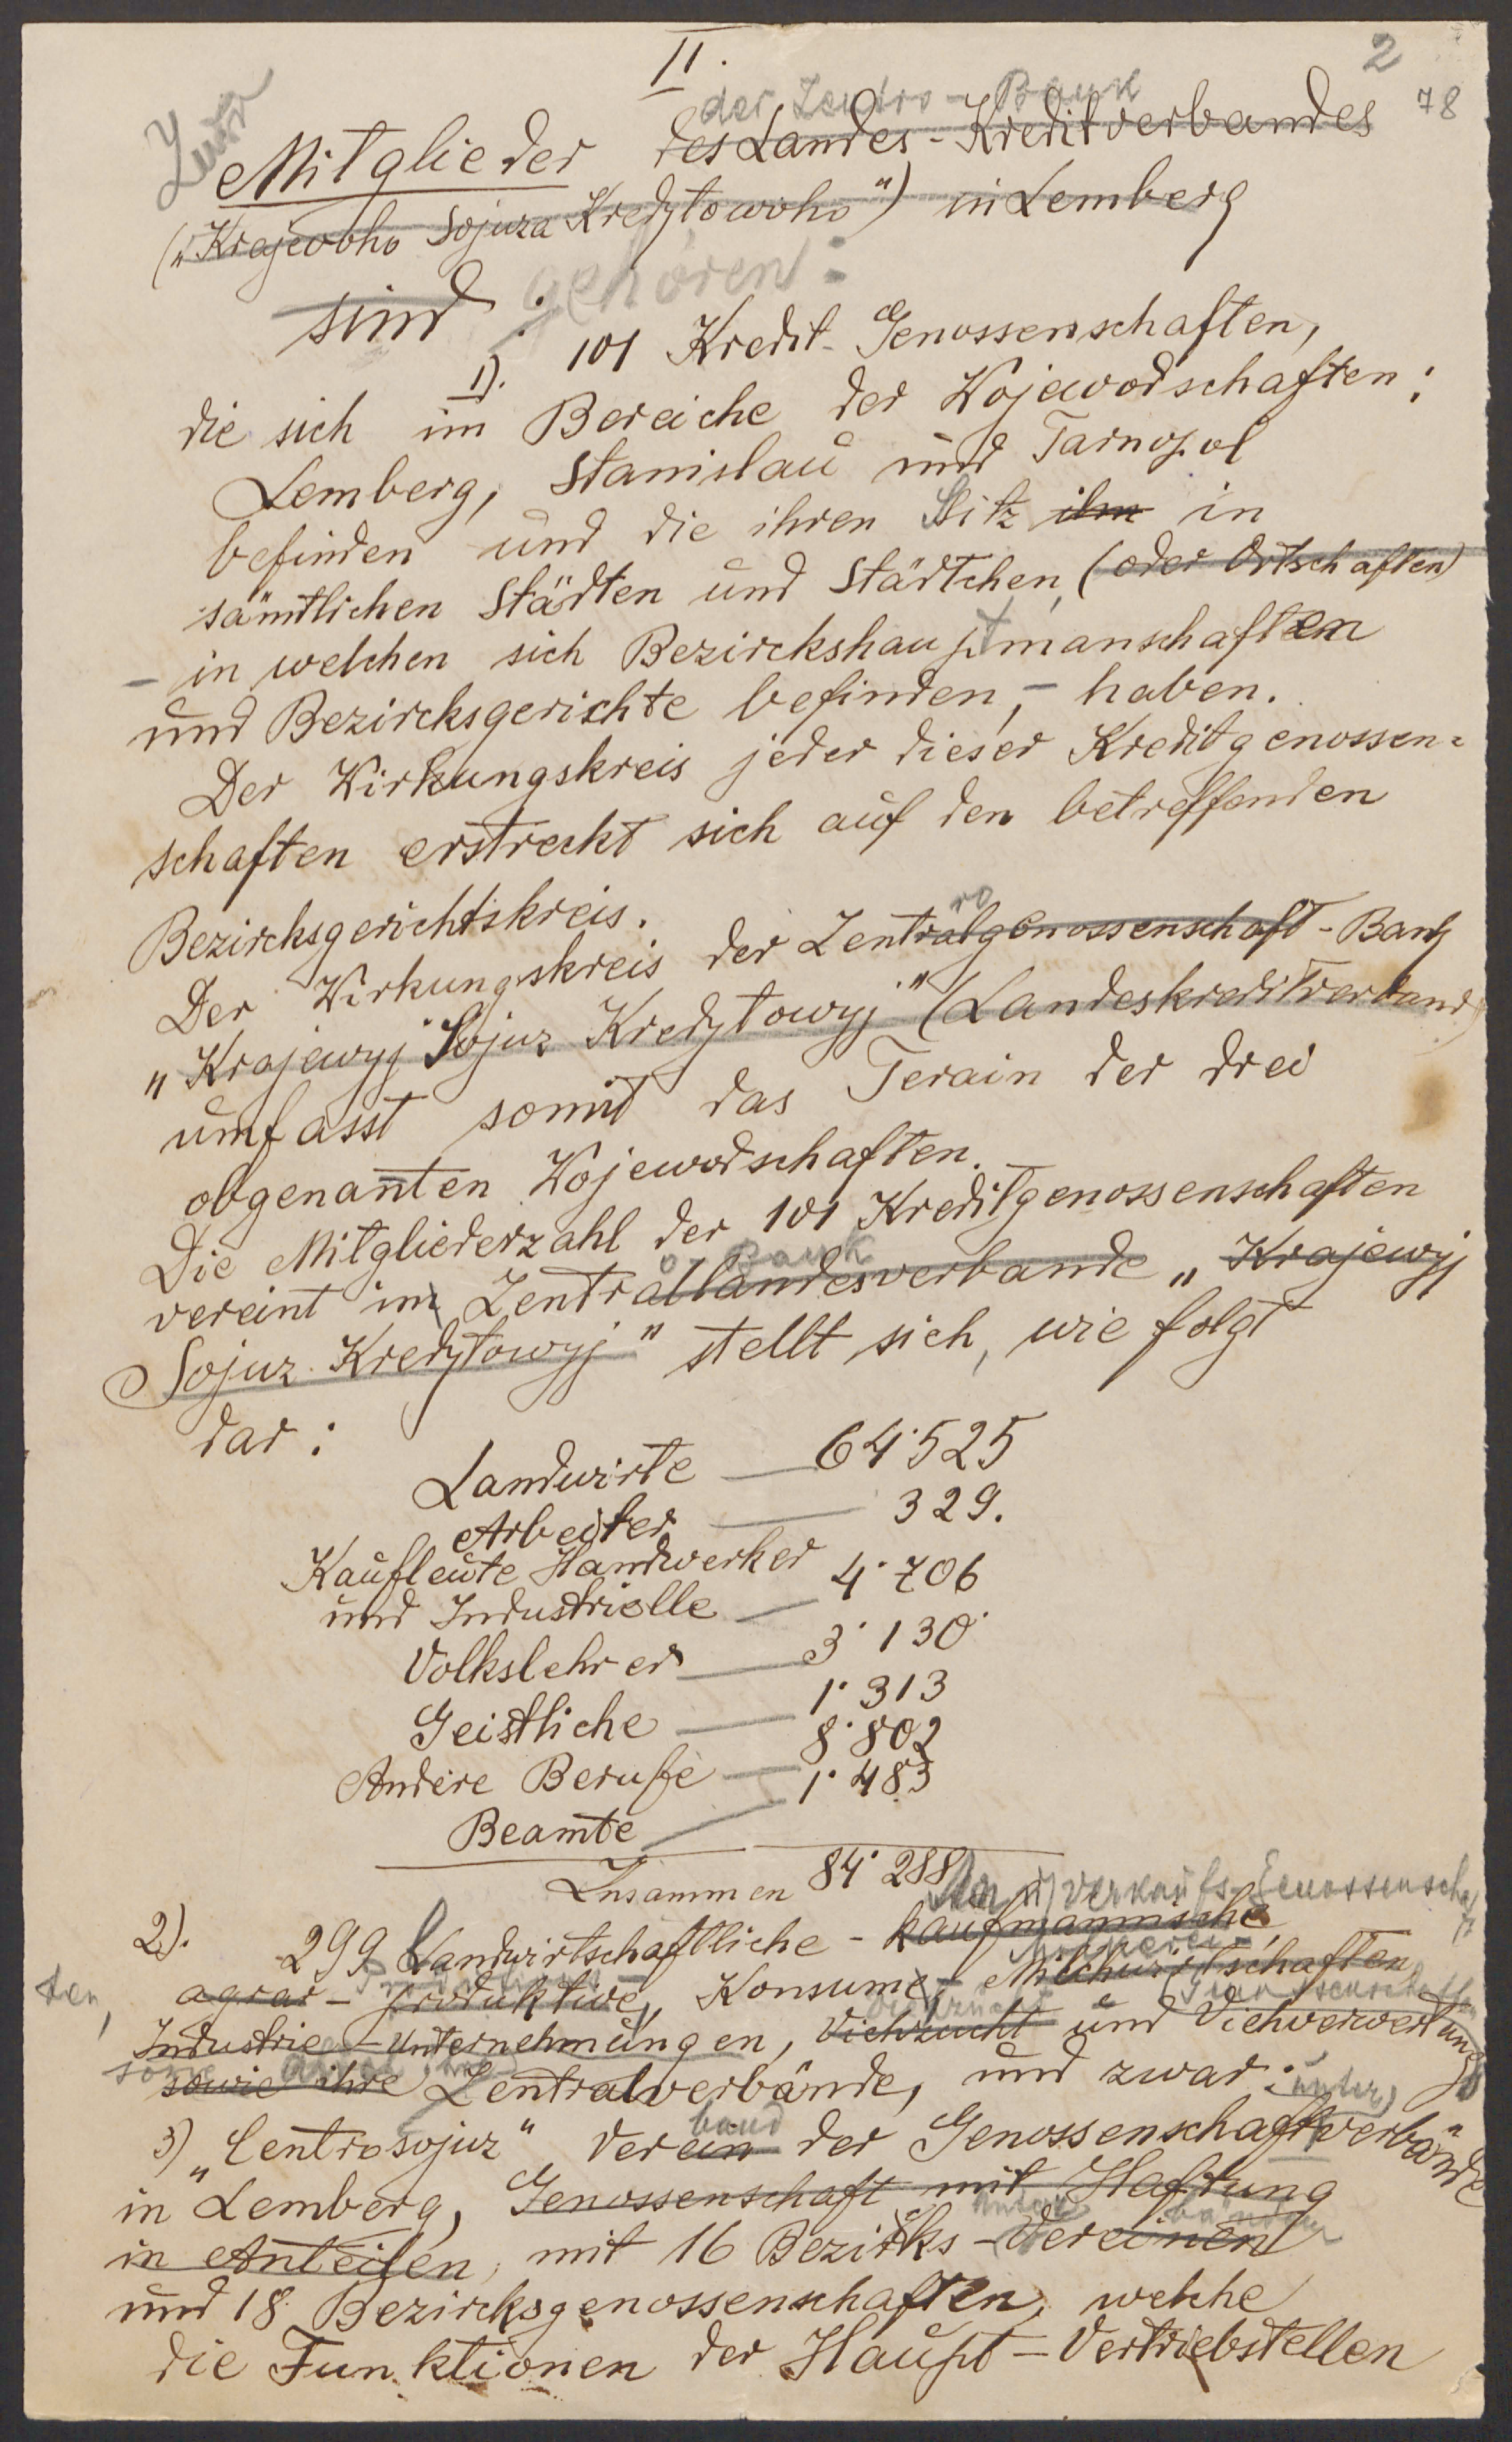 II.
2
78
Zur der Zentro-Bank
Mitglieder des Landes-Kreditverbandes
("Krajewoho Sojuza Kredytowoho") in Lemberg
sind: gehören:
1). 101 Kredit-Genossenschaften,
die sich im Bereiche der Wojewodschaften:
Lemberg, Stanislau und Tarnopol
befinden und die ihren Sitz ihn in
sämtlichen Städten und Städtchen, (oder Ortschaften)
- in welchen sich Bezirckshauptmanschaften
und Bezircksgerichte befinden, - haben.
Der Wirkungskreis jeder dieser Kreditgenossen=
schaften erstreckt sich auf den betreffenden
Bezircksgerichtskreis.
ro
Der Wirkungskreis der Zentralgenossenschaft-Bank
"Krajewyj Sojuz Kredytowyj" (Landeskreditverband)
umfasst somit das Terain der drei
obgenannten Wojewodschaften.
Die Mitgliederzahl der 101 Kreditgenossenschaften
o Bank
vereint im Zentrallandesverbande "Krajewyj
Sojuz Kredytowyj" stellt sich, wie folgt
dar:
Landwirte — 64'525
Arbeiter — 329.
Kaufleute Handwerker
und Industrielle — 4'706
Volkslehrer — 3'130
Geistliche — 1'313
Andere Berufe — 8'802
Beamte — 1'483
Zusammen 84'288
An u Verkaufs-Genossensch
2). 299 Landwirtschaftliche - kaufmannische,
agrar-produktive, Konsume,- Milchwirtschaften,
ten,
Industrie-Unternehmungen, Viehzucht und Viehverwertung
sowie ihre Zentralverbände, und zwar:
unter
band
3) "Centrosojuz" Verein der Genossenschaftverbände
in Lemberg, Genossenschaft mit Haftung
bänden
in Anteilen, mit 16 Bezirks-Vereinen
und 18 Bezircksgenossenschaften, welche
die Funktionen der Haupt-Vertriebstellen